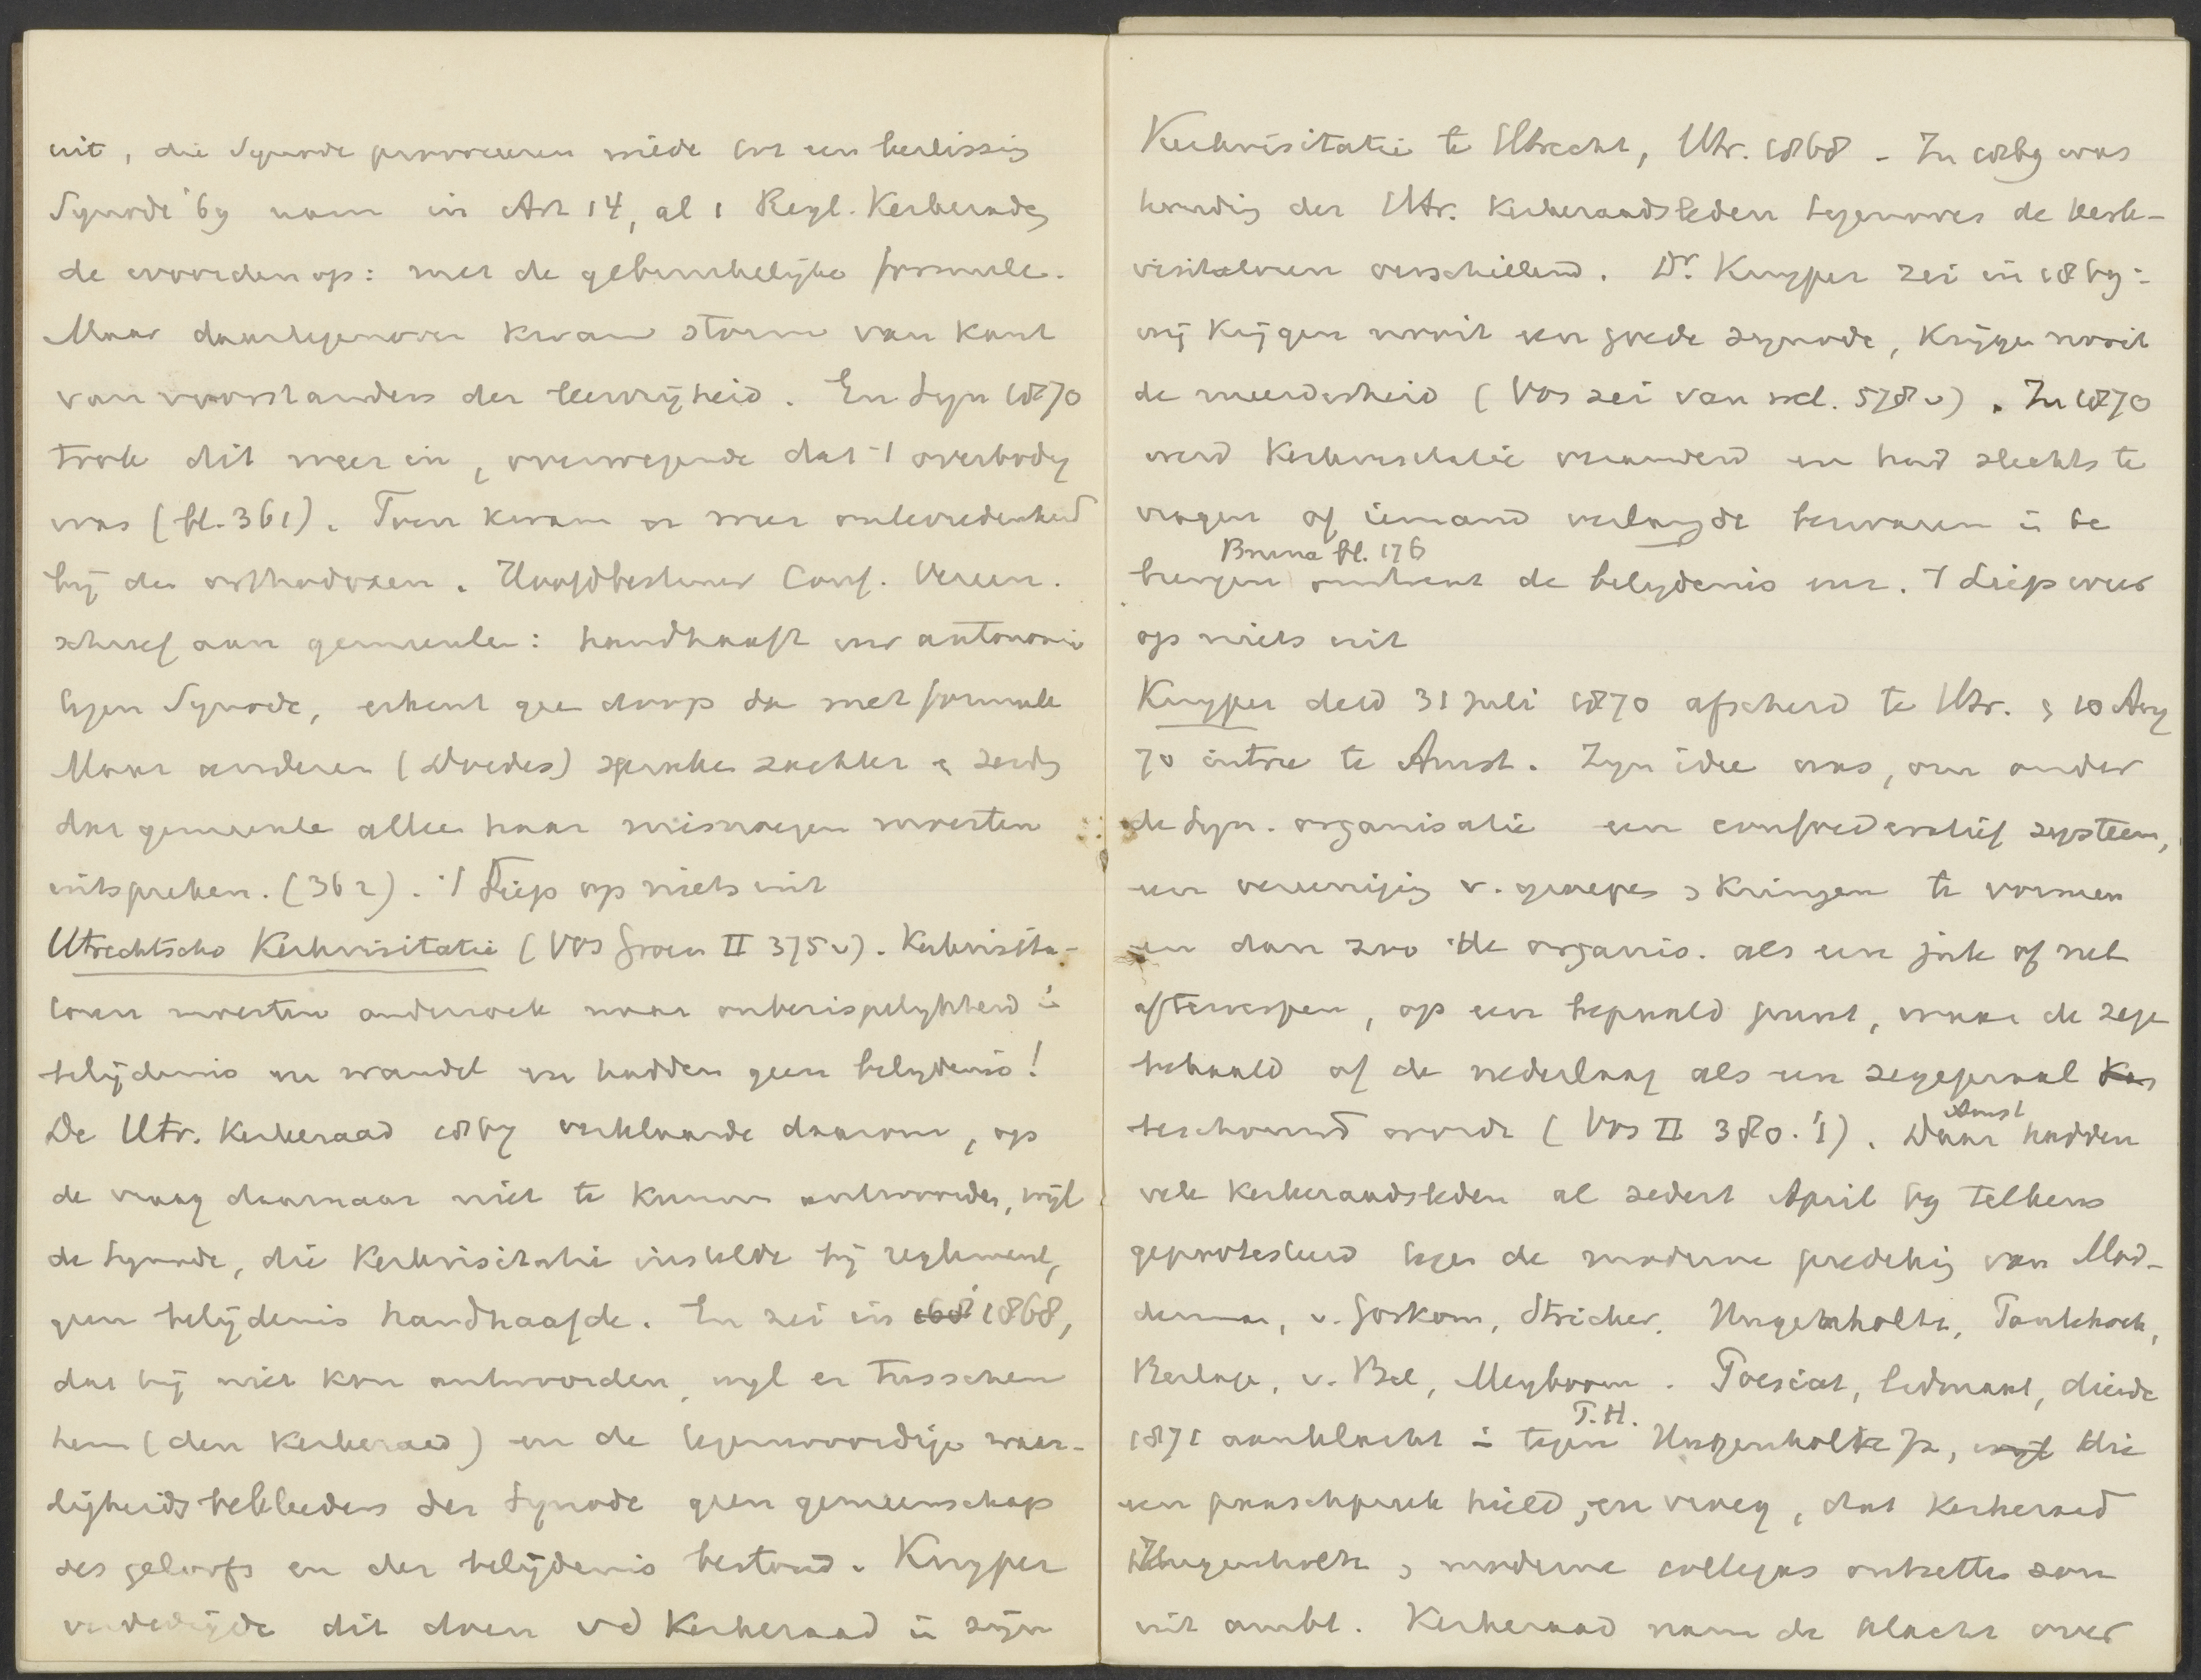 uit, die Synode provoceeren mede tot een beslissing
Synode '69 nam in Art 14, al 1 Regl. Kerkeraden
de woorden op: met de gebruikelijke formule.
Maar daartegenover kwam storm van kant
van voorstanders der leervrijheid. En Syn 1870
trok dit weer in, overwegende dat 't overbodig
was (bl. 361). Toen kwam er weer ontevredenheid
bij de orthodoxen. Hoofdbestuur Conf. Vereen.
schreef aan gemeenten: handhaaft uw autonomie
tegen Synode, erkent geen doop dan met formule
Maar anderen (Doedes) spraken zachter en zeiden
dat gemeente alleen haar misnoegen moesten
uitspreken. (362). 't Liep op niets uit
Utrechtsche Kerkvisitatie (Vos Groen II 375v). Kerkvisita-
toren moesten onderzoek naar onberispelijkheid in
belijdenis en wandel en hadden geen belijdenis!
De Utr. Kerkeraad 1867 verklaarde daarom, op
de vraag daarnaar niet te kunnen antwoorden, wijl
de Synode, die Kerkvisitatie instelde bij reglement,
geen belijdenis handhaafde. En zei in 1868,
dat hij niet kon antwoorden, wijl er tusschen
hem (den Kerkeraad) en de tegenwoordige waar-
digheidsbekleeders der Synode geen gemeenschap
des geloofs en der belijdenis bestond. Kuyper
verdedigde dit doen vd Kerkeraad in zijn
Kerkvisitatie te Utrecht, Utr. 1868 - In 1869 was
houding der Utr. Kerkeraadsleden tegenover de kerk-
visitatoren verschillend. Dr Kuyper zei in 1869:
wij krijgen nooit een goede synode, krijgen nooit
de meerderheid (Vos zei van wel. 378v). In 1870
werd Kerkvisitatie veranderd en had slechts te
vragen of iemand verlangde bezwaren in te
Bruna bl. 176
brengen omtrent de belijdenis enz. 't Liep weer
op niets uit
Kuyper deed 31 Juli 1870 afscheid te Utr. & 10 Aug
70 intree te Amst. Zijn idee was, om onder
de Syn. organisatie een confoederatief systeem,
een vereeniging v. groepen & kringen te vormen
en dan zoo de organis. als een juk of net
afterwerpen, op een bepaald punt, waar de zege
behaald of de nederlaag als een zegepraal
Amst
beschouwd worde (Vos II 380.1). Daar hadden
vele Kerkeraadsleden al sedert April 69 telkens
geprotesteerd tegen de moderne prediking van Mod-
derman, v. Gorkom, Stricker, Hugenholtz, Tonkhoek,
Berlage, v. Bel, Meyboom. Poesiat, lidmaat, diende
T.H.
1871 aanklacht in tegen Hugenholtz Jr, wijl die
een paaschpreek hield, en vroeg, dat Kerkeraad
Hugenholtz & moderne collegas ontzetten zou
uit ambt. Kerkeraad nam de klacht over